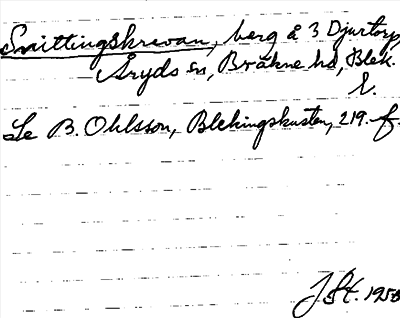 Snittingskrevan, berg å 3 Djurtorp,
Åryds sn, Bräkne hd, Blek.
l.
Se B. Ohlsson, Blekingskusten, 219. f.
J. St. 1950